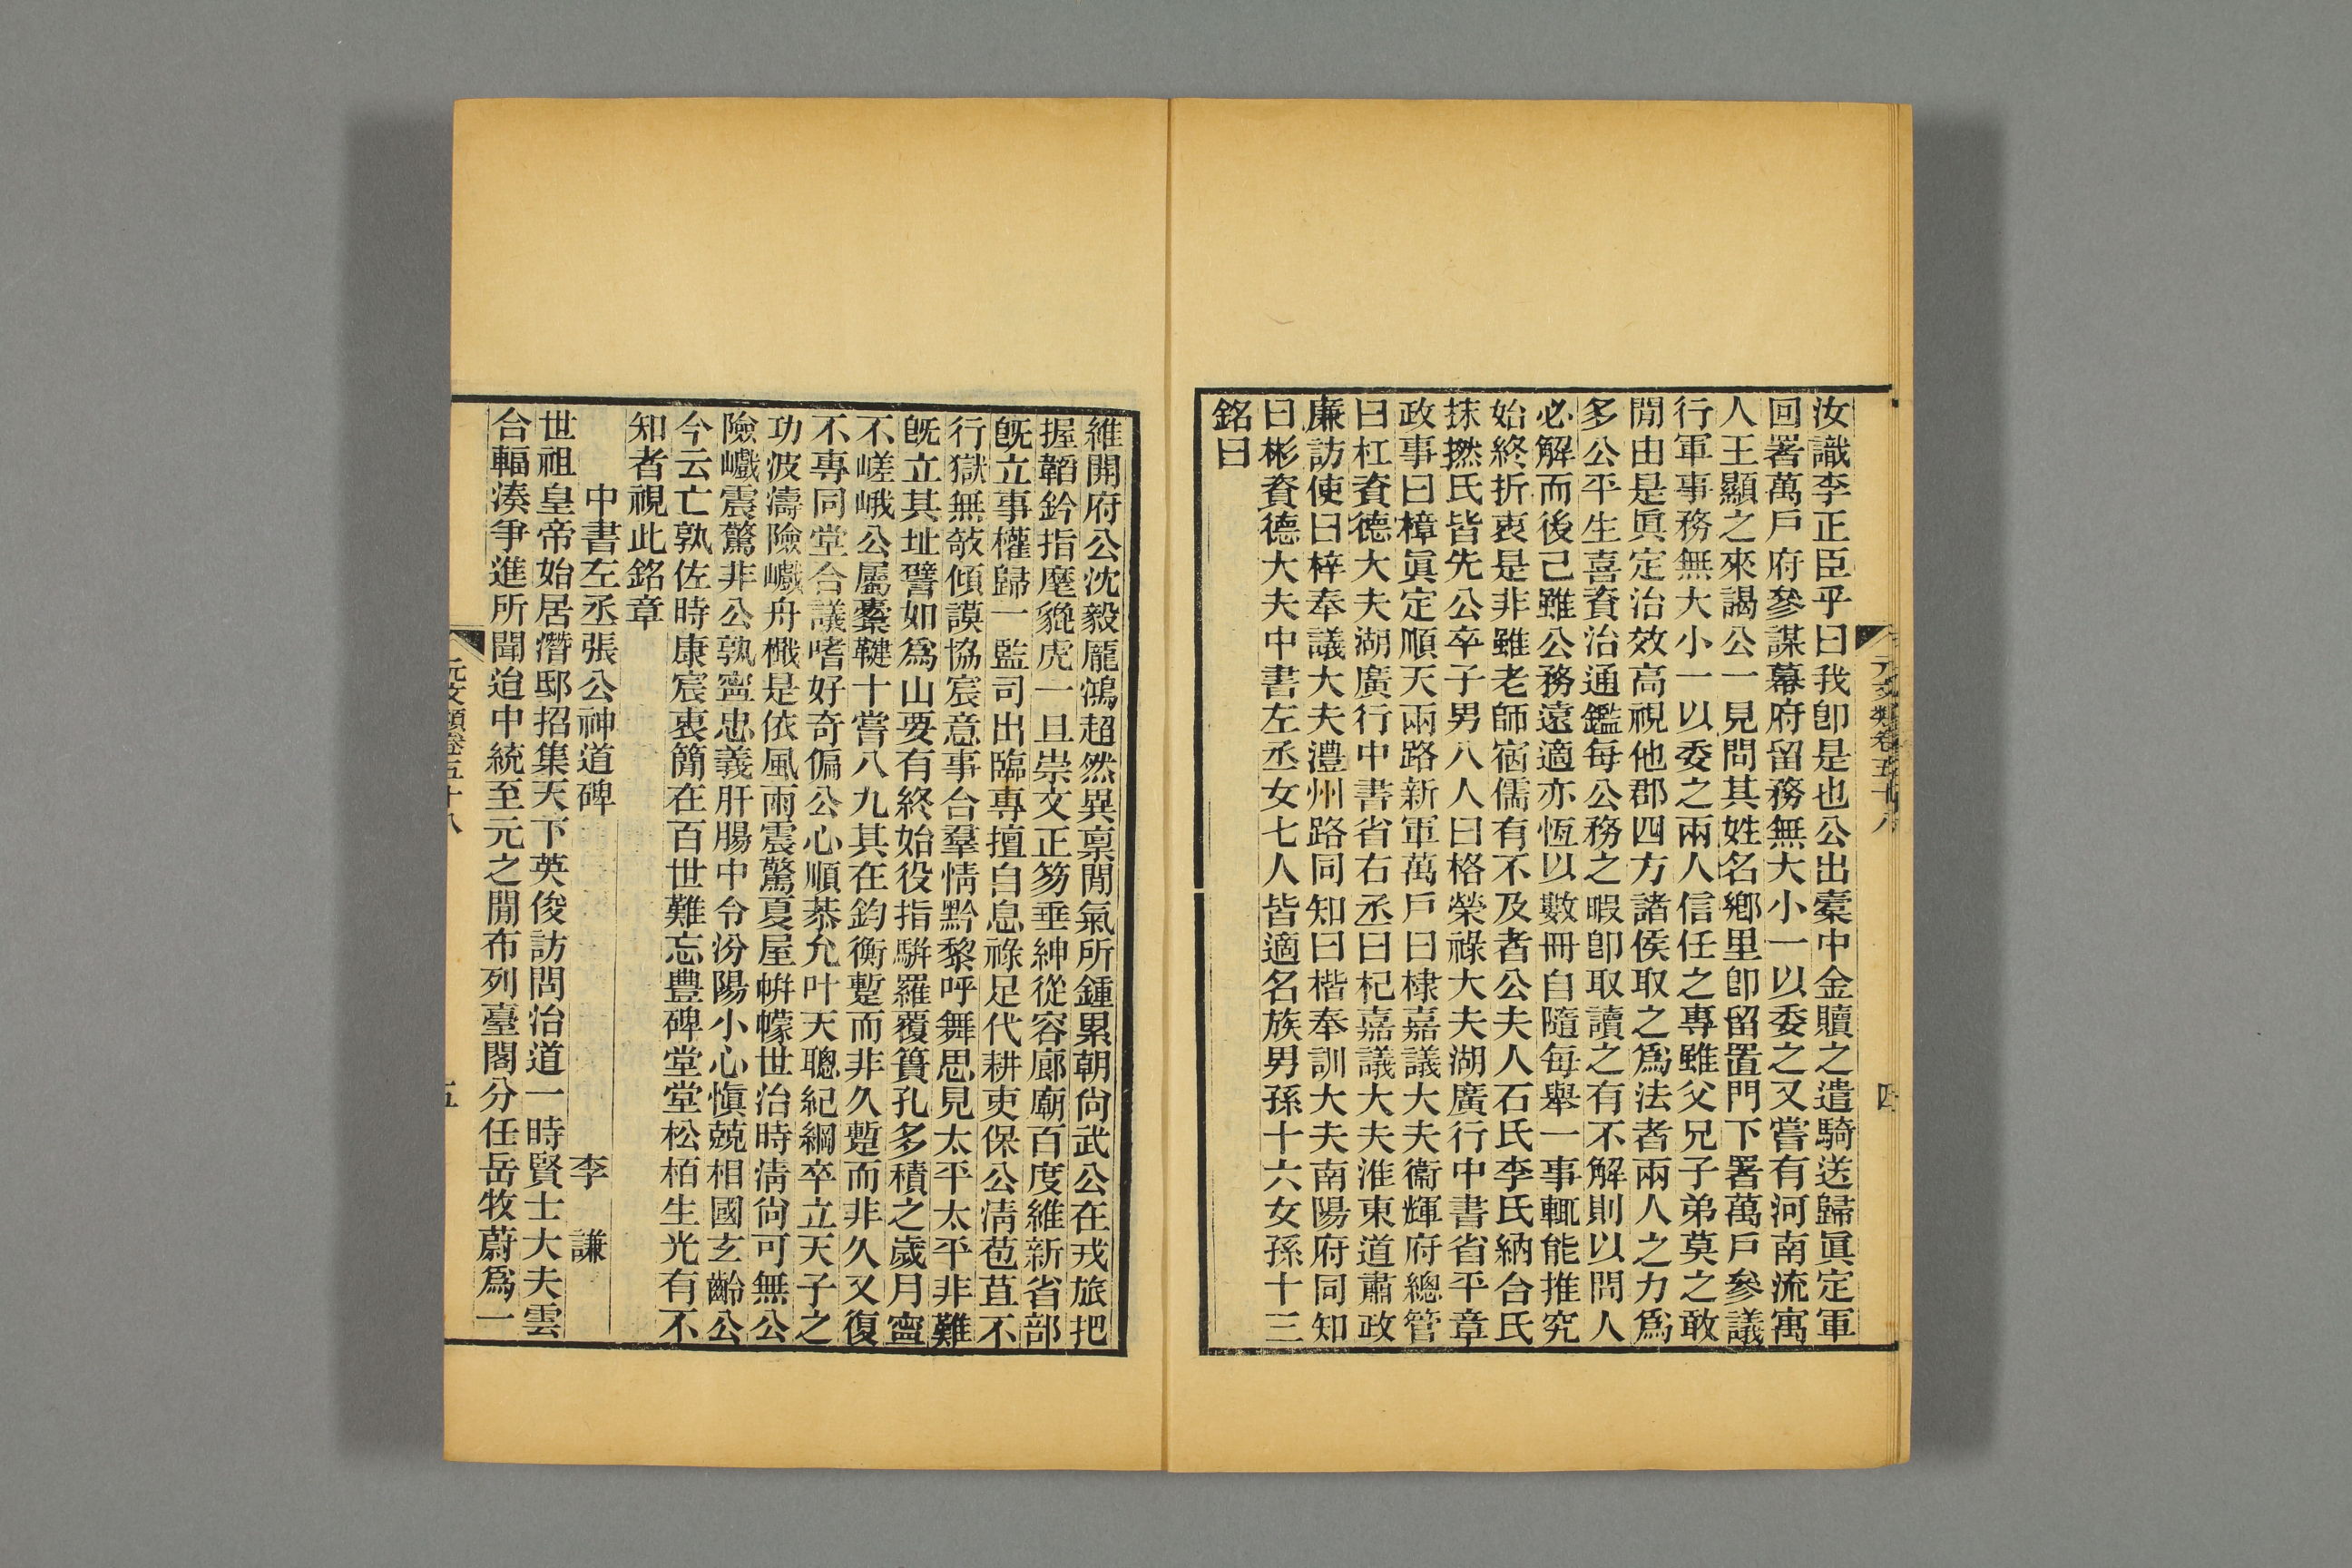 汝識李正臣乎曰我卽是也公出橐中金贖之遣騎送歸眞定軍
回署萬戶府參謀幕府留務無大小一以委之又嘗有河南流寓
人王顯之來謁公一見問其姓名鄉里卽留置門下署萬戶參議
行軍事務無大小一以委之兩人信任之專雖父兄子弟莫之敢
閒由是眞定治效高視他郡四方諸侯取之爲法者兩人之力爲
多公平生喜資治通鑑每公務之暇卽取讀之有不解則以問人
必解而後已雖公務遠適亦恆以數冊自隨每舉一事輒能推究
始終折衷是非雖老師宿儒有不及者公夫人石氏李氏納合氏
抹撚氏皆先公卒子男八人曰格榮祿大夫湖廣行中書省平章
政事曰樟眞定順天兩路新軍萬戶曰棣嘉議大夫衞輝府總管
曰杠資德大夫湖廣行中書省右丞曰杞嘉議大夫淮東道肅政
廉訪使曰梓奉議大夫澧州路同知曰楷奉訓大夫南陽府同知
曰彬資德大夫中書左丞女七人皆適名族男孫十六女孫十三
銘曰
元文類卷五十八
四
維開府公沈毅龐鴻超然異禀閒氣所鍾累朝尙武公在戎旅把
握韜鈐指麾貔虎一旦崇文正笏垂紳從容廊廟百度維新省部
旣立事權歸一監司出臨專擅自息祿足代耕吏保公淸苞苴不
行獄無敧傾謨協宸意事合羣情黔黎呼舞思見太平太平非難
旣立其址譬如爲山要有終始役指騈羅覆簣孔多積之歲月寧
不嵯峨公屬櫜鞬十嘗八九其在鈞衡蹔而非久蹔而非久又復
不專同堂合議嗜好奇偏公心順恭允叶天聰紀綱卒立天子之
功波濤險巇舟檝是依風雨震驚夏屋帡幪世治時淸尙可無公
險巇震驚非公孰寧忠義肝腸中令汾陽小心愼兢相國玄齡公
今云亡孰佐時康宸衷簡在百世難忘豐碑堂堂松栢生光有不
知者視此銘章
中書左丞張公神道碑　李　謙
世祖皇帝始居潛邸招集天下英俊訪問治道一時賢士大夫雲
合輻湊爭進所聞迨中統至元之閒布列臺閣分任岳牧蔚爲一
元文類卷五十八
五